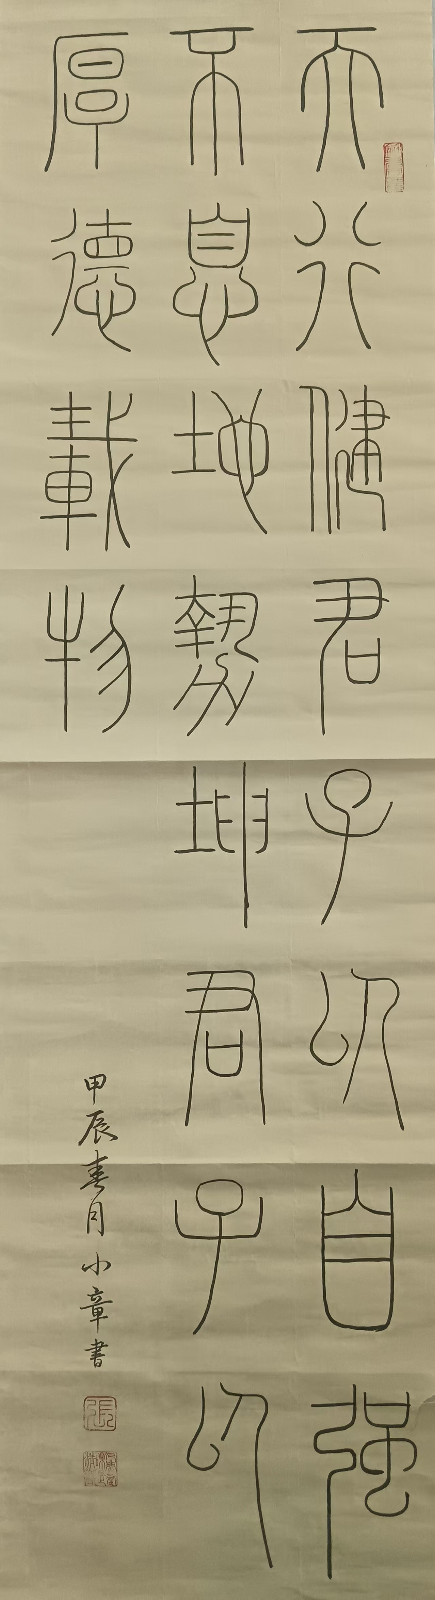 天行健君子以自强
不息地势坤君子以
厚德载物
甲辰春月小章书
張